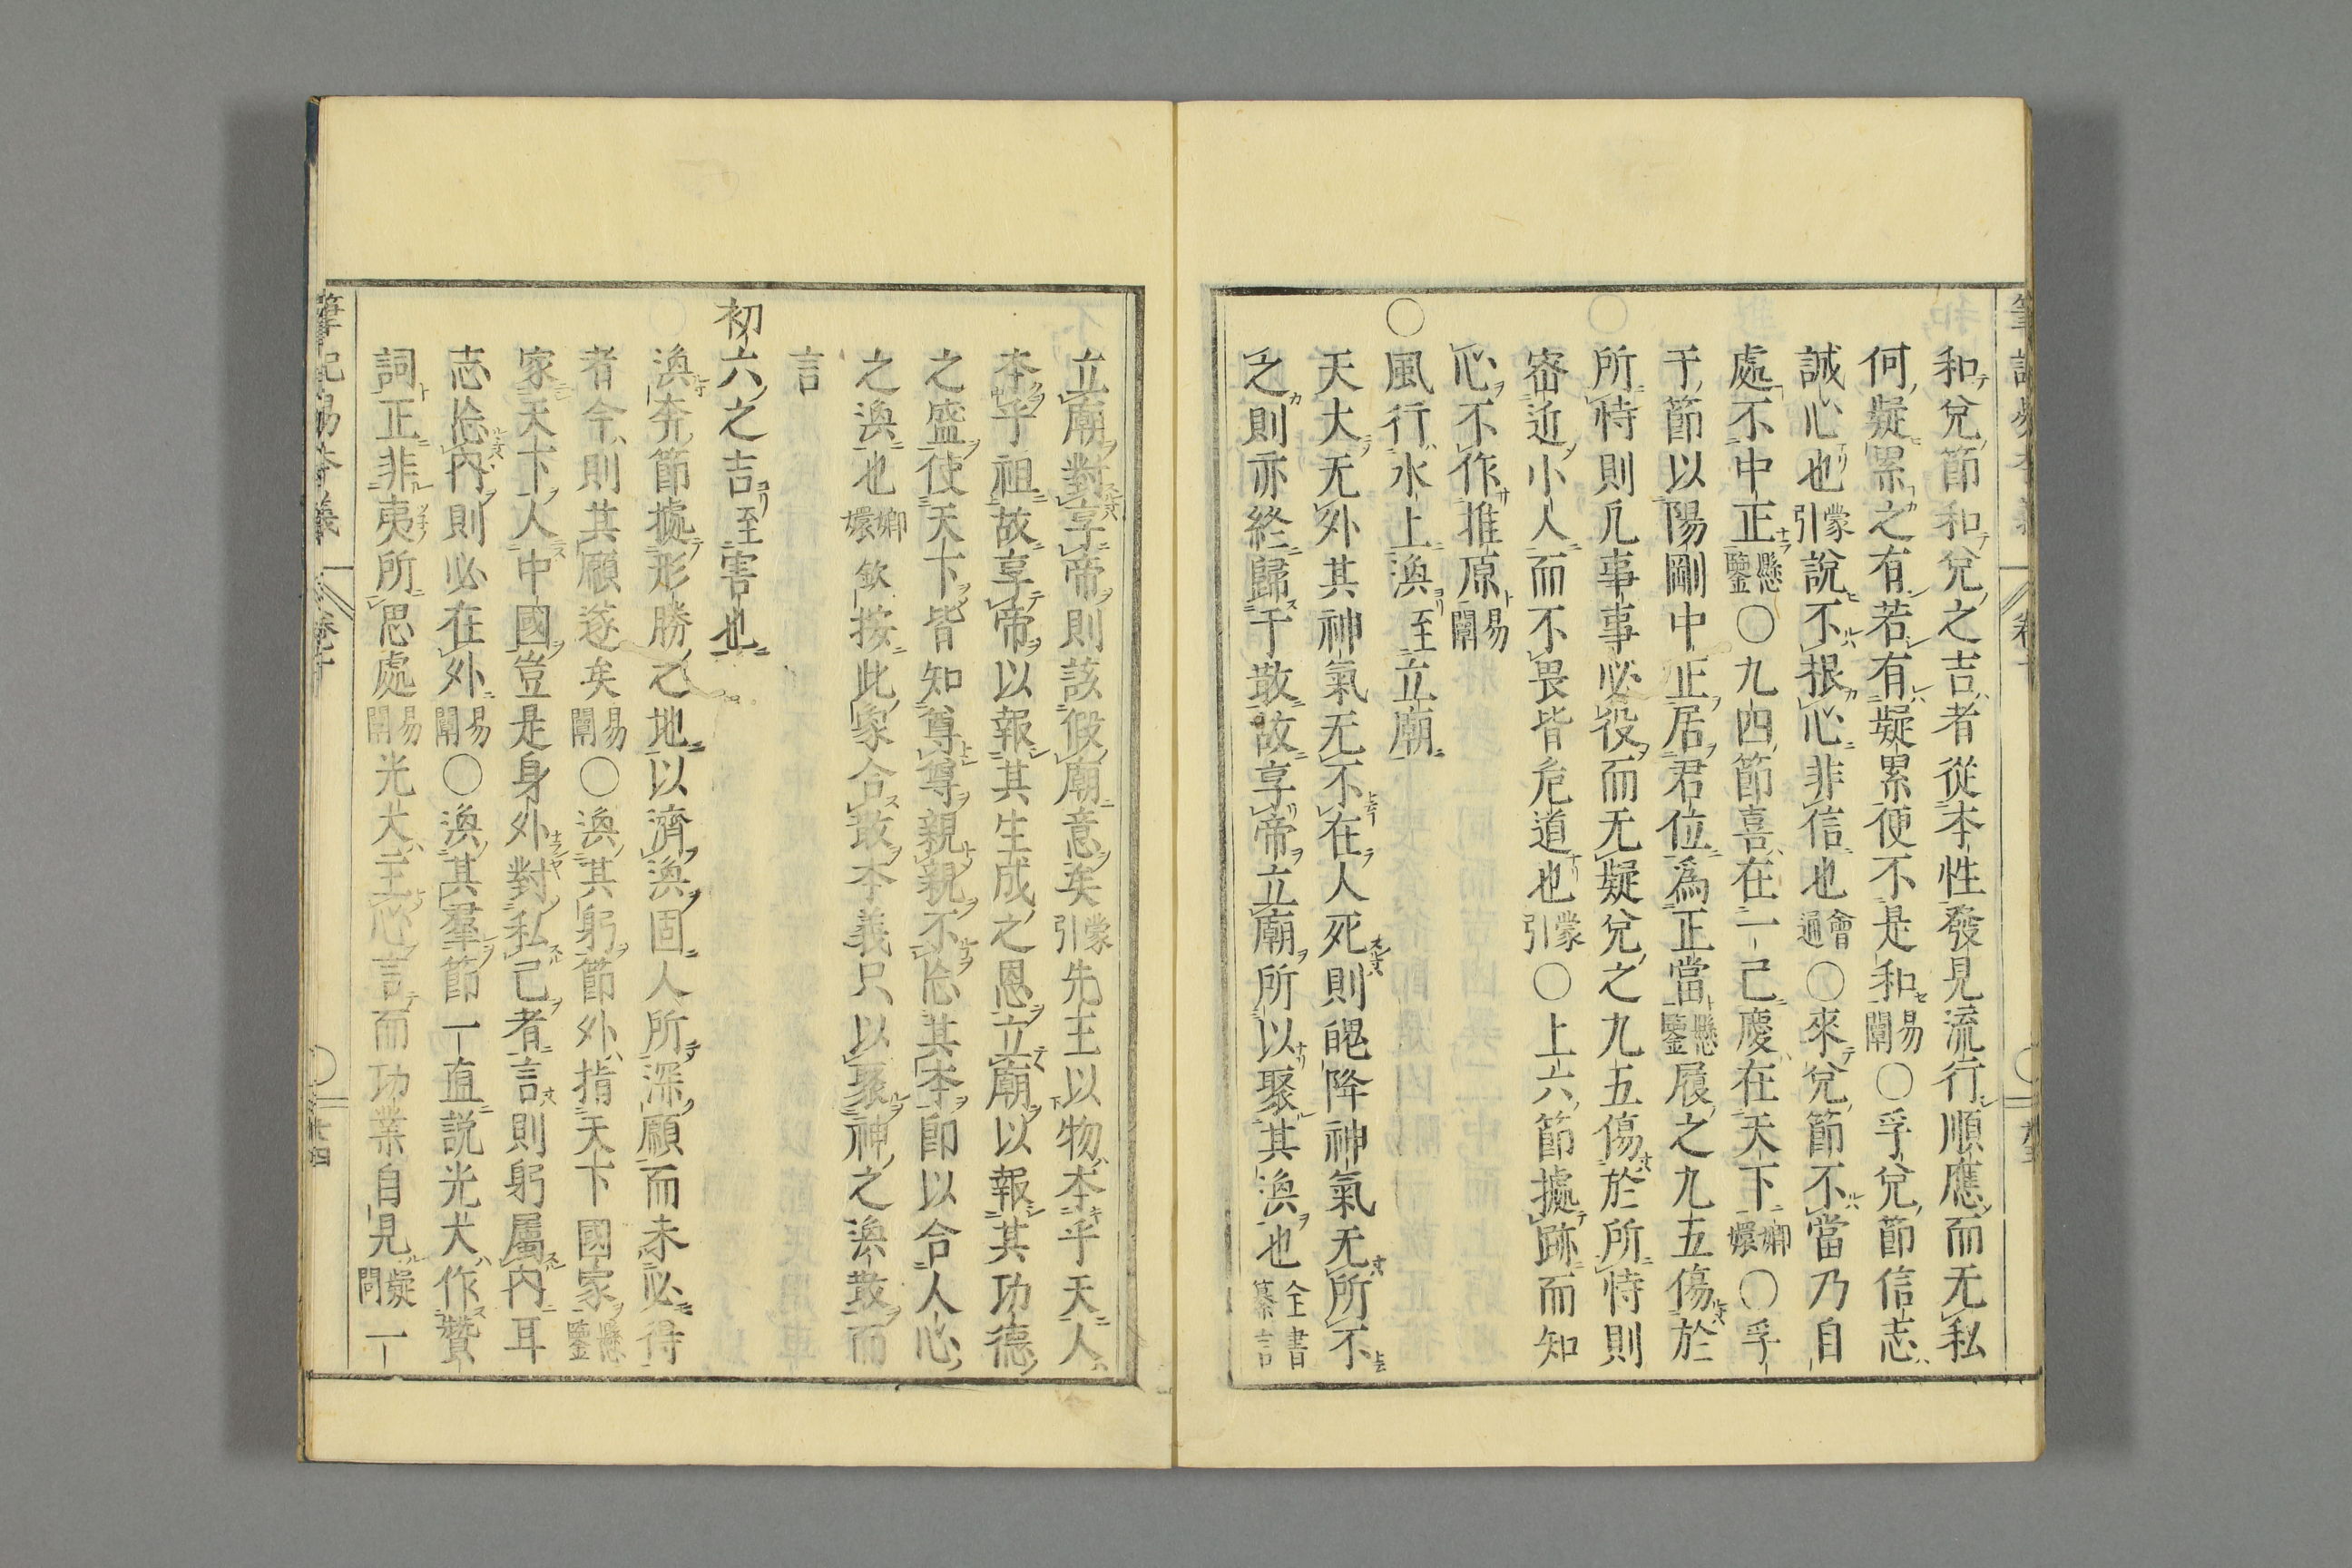 和兌節和兌之吉者從本性發見流行順應而无私
何疑累之有若有疑累便不是和易闡〇孚兌節信志
誠心也蒙引說不根心非信也會通〇來兌節不當乃自
處不中正懸鑒〇九四節喜在一己慶在天下嫏嬛〇孚
于節以陽剛中正居君位爲正當懸鑒履之九五傷於
所恃則凡事事必役而无疑兌之九五傷於所恃則
宻近小人而不畏皆危道也蒙引〇上六節據跡而知
心不作推原易闡
〇風行水上渙至立廟
天大无外其神氣无不在人死則魄降神氣无所不
之則亦終歸于散故享帝立廟所以聚其渙也全書纂言
立廟對享帝則該假廟意矣蒙引先王以物本乎天人
本乎祖故享帝以報其生成之恩立廟以報其功德
之盛使天下皆知尊尊親親不忘其本卽以合人心
之渙也嫏嬛欽按此象合散本義只以聚神之渙散而
言
初六之吉至害也
渙奔節據形勝之地以濟渙固人所深願而未必得
者今則其願遂矣易闡〇渙其躬節外指天下國家懸鑒
家天下人中國豈是身外對私己者言則躬屬内耳
志忘内則必在外易闡〇渙其羣節一直説光大作贊
詞正非夷所思處易闡光大主心言而功業自見疑問一
筆記易本義
卷十
廿四